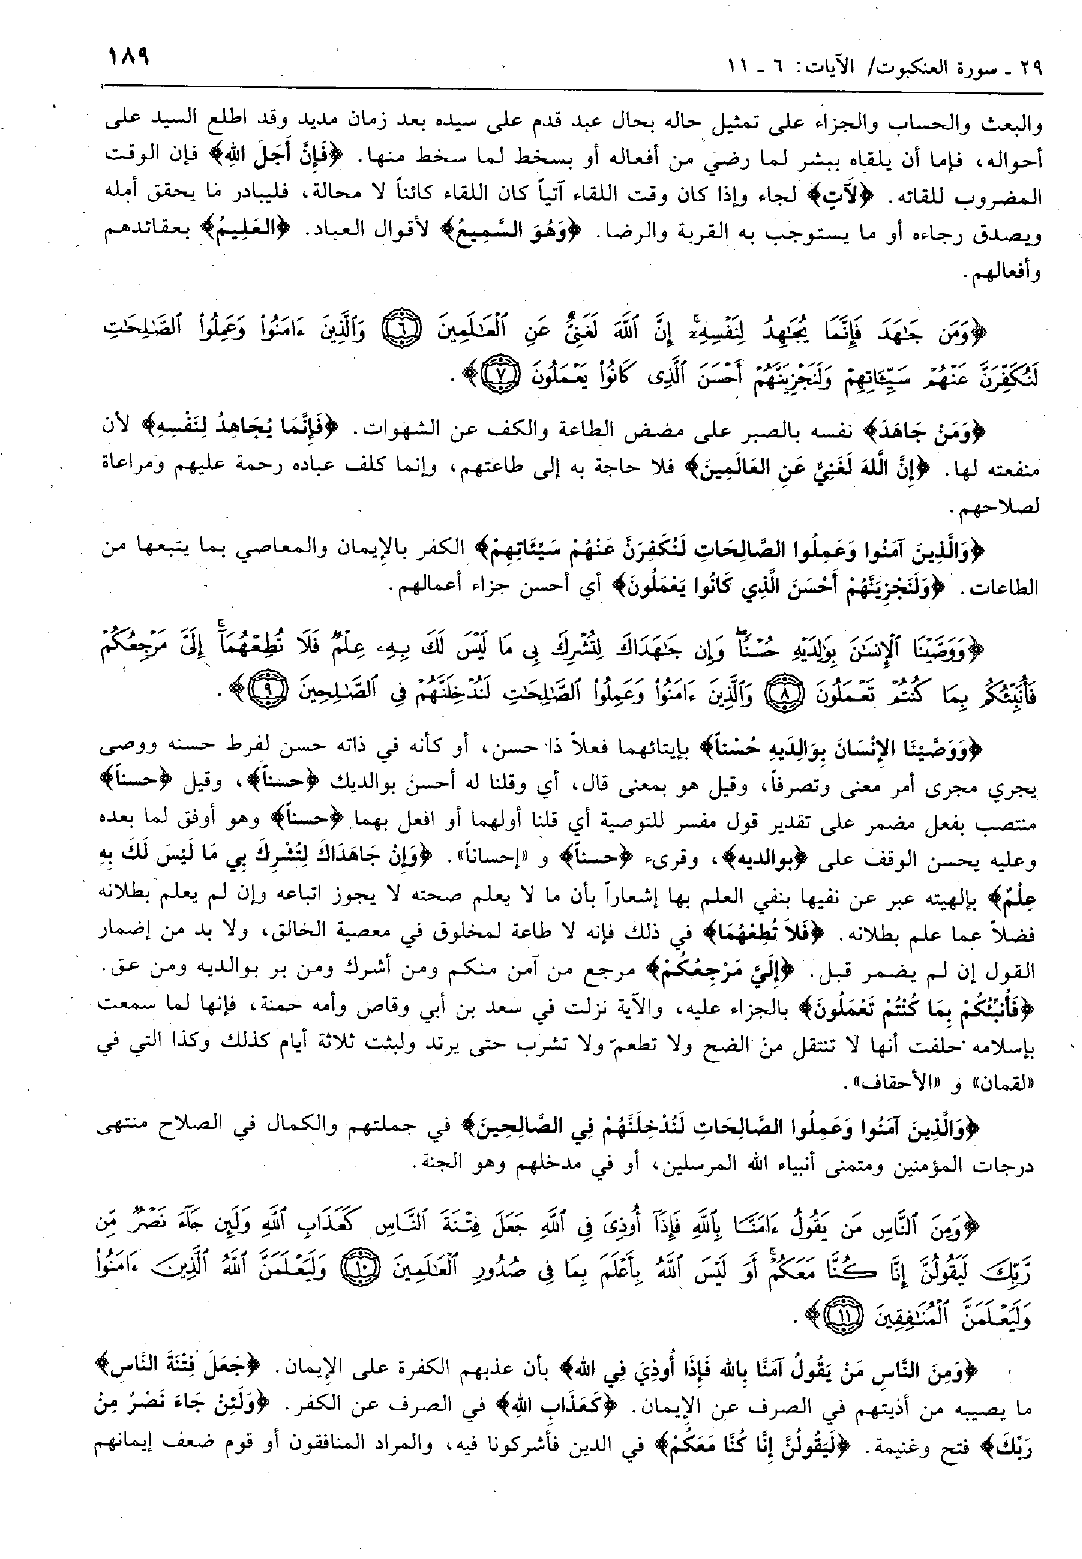 ٢٩ ـ سورة العنكبوت/ الآيات: ٦ ـ ١١
١٨٩
والبعث والحساب والجزاء على تمثيل حاله بحال عبد قدم على سيده بعد زمان مديد وقد اطلع السيد على
أحواله، فإما أن يلقاه ببشر لما رضي من أفعاله أو بسخط لما سخط منها. ﴿فَإِنَّ أَجَلَ اللهِ﴾ فإن الوقت
المضروب للقائه. ﴿لَآتٍ﴾ لجاء وإذا كان وقت اللقاء آتياً كان اللقاء كائناً لا محالة، فليبادر مَا يحقق أمله
ويصدق رجاءه أو ما يستوجب به القربة والرضا. ﴿وَهُوَ السَّمِيعُ﴾ لأقوال العباد. ﴿العَلِيمُ﴾ بعقائدهم
وأفعالهم.
﴿وَمَن جَٰهَدَ فَإِنَّمَا يُجَٰهِدُ لِنَفْسِهِۦٓ إِنَّ ٱللَّهَ لَغَنِىٌّ عَنِ ٱلْعَٰلَمِينَ ٦ وَٱلَّذِينَ ءَامَنُوا۟ وَعَمِلُوا۟ ٱلصَّٰلِحَٰتِ
لَنُكَفِّرَنَّ عَنْهُمْ سَيِّـَٔاتِهِمْ وَلَنَجْزِيَنَّهُمْ أَحْسَنَ ٱلَّذِى كَانُوا۟ يَعْمَلُونَ ٧﴾.
﴿وَمَنْ جَاهَدَ﴾ نفسه بالصبر على مضض الطاعة والكف عن الشهوات. ﴿فَإِنَّمَا يُجَاهِدُ لِنَفْسِهِ﴾ لأن
منفعته لها. ﴿إِنَّ اللَّهَ لَغَنِيٌّ عَنِ العَالَمِينَ﴾ فلا حاجة به إلى طاعتهم، وإنما كلف عباده رحمة عليهم ومراعاة
لصلاحهم.
﴿وَالَّذِينَ آمَنُوا وَعَمِلُوا الصَّالِحَاتِ لَنُكَفِّرَنَّ عَنْهُمْ سَيِّئَاتِهِمْ﴾ الكفر بالإيمان والمعاصي بما يتبعها من
الطاعات. ﴿وَلَنَجْزِيَنَّهُمْ أَحْسَنَ الَّذِي كَانُوا يَعْمَلُونَ﴾ أي أحسن جزاء أعمالهم.
﴿وَوَصَّيْنَا ٱلْإِنسَٰنَ بِوَٰلِدَيْهِ حُسْنًا ۖ وَإِن جَٰهَدَاكَ لِتُشْرِكَ بِى مَا لَيْسَ لَكَ بِهِۦ عِلْمٌ فَلَا تُطِعْهُمَآ ۚ إِلَىَّ مَرْجِعُكُمْ
فَأُنَبِّئُكُم بِمَا كُنتُمْ تَعْمَلُونَ ٨ وَٱلَّذِينَ ءَامَنُوا۟ وَعَمِلُوا۟ ٱلصَّٰلِحَٰتِ لَنُدْخِلَنَّهُمْ فِى ٱلصَّٰلِحِينَ ٩﴾.
﴿وَوَصَّيْنَا الإِنْسَانَ بِوَالِدَيهِ حُسْناً﴾ بإيتائهما فعلاً ذا حسن، أو كأنه في ذاته حسن لفرط حسنه ووصى
يجري مجرى أمر معنى وتصرفاً، وقيل هو بمعنى قال، أي وقلنا له أحسن بوالديك ﴿حسناً﴾، وقيل ﴿حسناً﴾
منتصب بفعل مضمر على تقدير قول مفسر للتوصية أي قلنا أولهما أو افعل بهما ﴿حسناً﴾ وهو أوفق لما بعده
وعليه يحسن الوقف على ﴿بوالديه﴾، وقرىء ﴿حسناً﴾ و «إحساناً». ﴿وَإِنْ جَاهَدَاكَ لِتُشْرِكَ بِي مَا لَيْسَ لَكَ بِهِ
عِلْمٌ﴾ بإلهيته عبر عن نفيها بنفي العلم بها إشعاراً بأن ما لا يعلم صحته لا يجوز اتباعه وإن لم يعلم بطلانه
فضلاً عما علم بطلانه. ﴿فَلاَ تُطِعْهُمَا﴾ في ذلك فإنه لا طاعة لمخلوق في معصية الخالق، ولا بد من إضمار
القول إن لم يضمر قبل. ﴿إِلَيَّ مَرْجِعُكُمْ﴾ مرجع من آمن منكم ومن أشرك ومن بر بوالديه ومن عق.
﴿فَأُنَبِّئُكُمْ بِمَا كُنْتُمْ تَعْمَلُونَ﴾ بالجزاء عليه، والآية نزلت في سعد بن أبي وقاص وأمه حمنة، فإنها لما سمعت
بإسلامه حلفت أنها لا تنتقل من الضح ولا تطعم ولا تشرب حتى يرتد ولبثت ثلاثة أيام كذلك وكذا التي في
«لقمان» و «الأحقاف».
﴿وَالَّذِينَ آمَنُوا وَعَمِلُوا الصَّالِحَاتِ لَنُدْخِلَنَّهُمْ فِي الصَّالِحِينَ﴾ في جملتهم والكمال في الصلاح منتهى
درجات المؤمنين ومتمنى أنبياء الله المرسلين، أو في مدخلهم وهو الجنة.
﴿وَمِنَ ٱلنَّاسِ مَن يَقُولُ ءَامَنَّا بِٱللَّهِ فَإِذَآ أُوذِىَ فِى ٱللَّهِ جَعَلَ فِتْنَةَ ٱلنَّاسِ كَعَذَابِ ٱللَّهِ وَلَئِن جَآءَ نَصْرٌ مِّن
رَّبِّكَ لَيَقُولُنَّ إِنَّا كُنَّا مَعَكُمْ ۚ أَوَ لَيْسَ ٱللَّهُ بِأَعْلَمَ بِمَا فِى صُدُورِ ٱلْعَٰلَمِينَ ١٠ وَلَيَعْلَمَنَّ ٱللَّهُ ٱلَّذِينَ ءَامَنُوا۟
وَلَيَعْلَمَنَّ ٱلْمُنَٰفِقِينَ ١١﴾.
﴿وَمِنَ النَّاسِ مَنْ يَقُولُ آمَنَّا بِاللهِ فَإِذَا أُوذِيَ فِي اللهِ﴾ بأن عذبهم الكفرة على الإيمان. ﴿جَعَلَ فِتْنَةَ النَّاسِ﴾
ما يصيبه من أذيتهم في الصرف عن الإيمان. ﴿كَعَذَابِ اللهِ﴾ في الصرف عن الكفر. ﴿وَلَئِنْ جَاءَ نَصْرٌ مِنْ
رَبِّكَ﴾ فتح وغنيمة. ﴿لَيَقُولُنَّ إِنَّا كُنَّا مَعَكُمْ﴾ في الدين فأشركونا فيه، والمراد المنافقون أو قوم ضعف إيمانهم